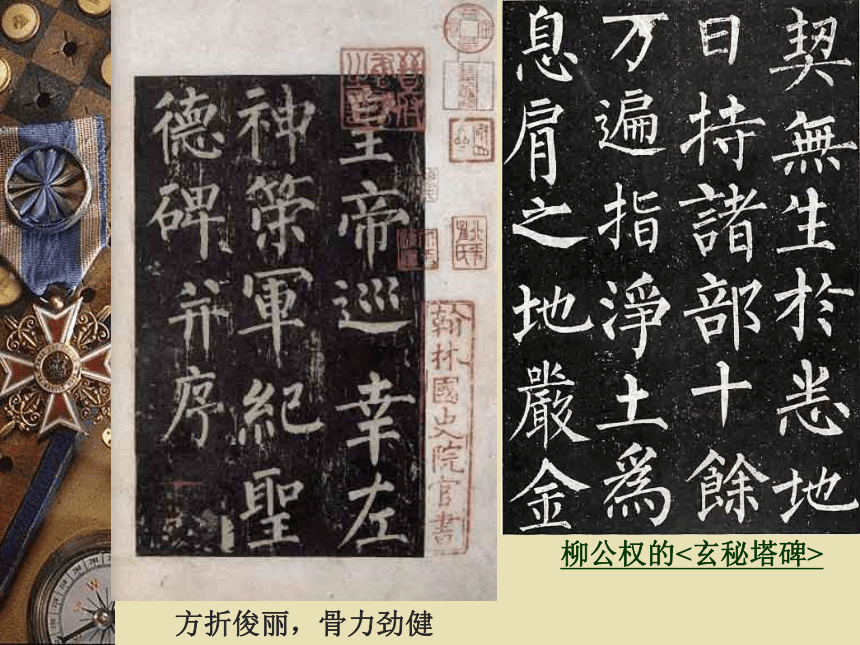 皇帝巡幸左
神策軍紀聖
德碑并序
翰林國史院官書
方折俊丽，骨力劲健
契無生於悉地
日持諸部十餘
万遍指淨土為
息肩之地嚴金
柳公权的<玄秘塔碑>